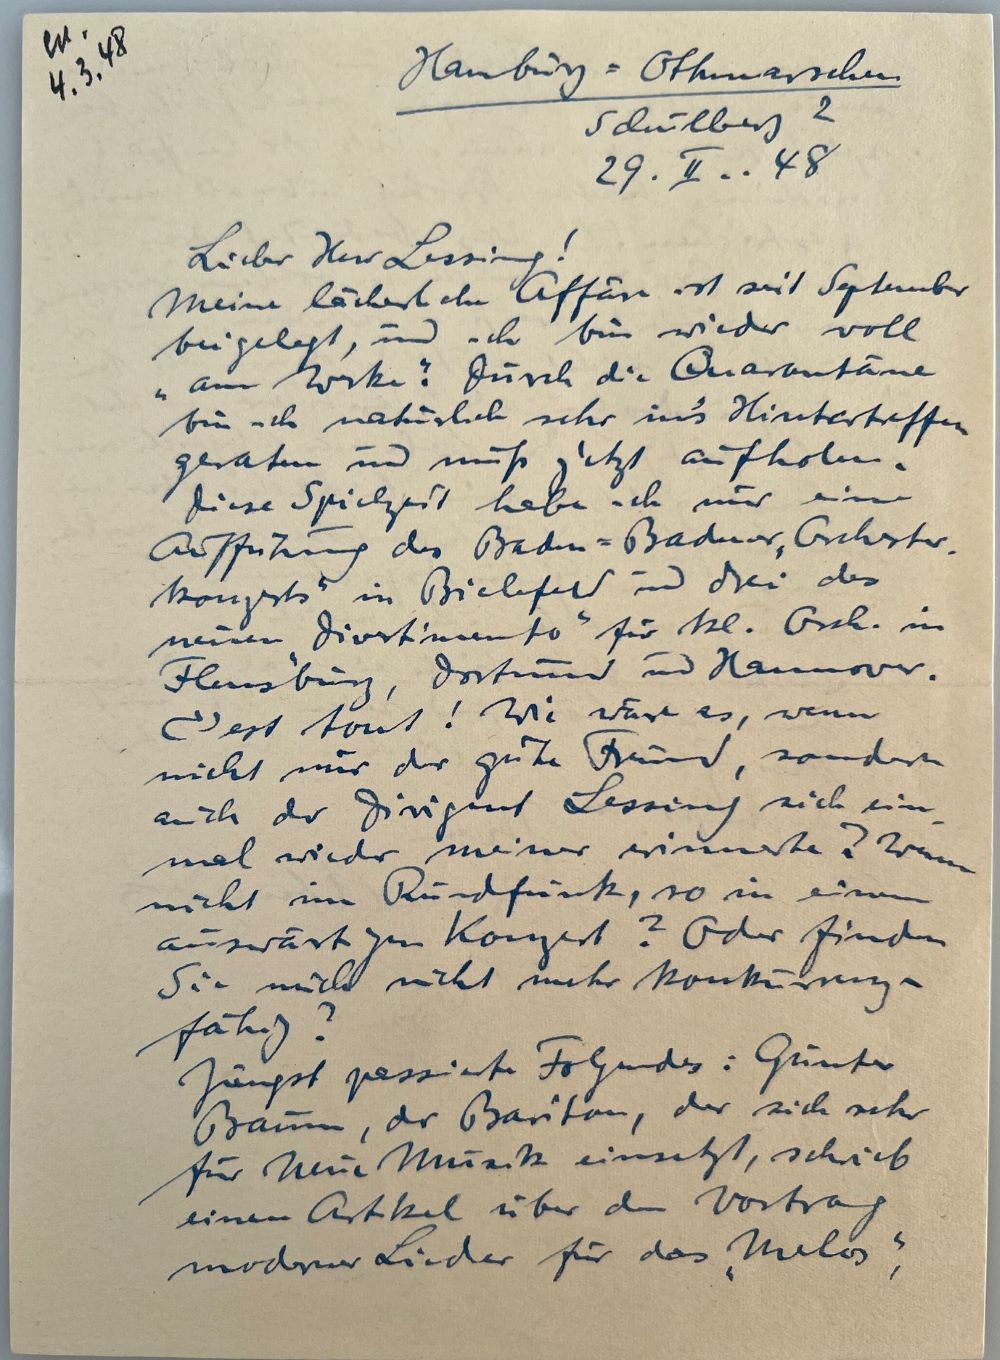 er.
4.3.48
Hamburg=Othmarschen
Schulberg 2
29. II.. 48
Lieber Herr Lessing!
Meine lächerliche Affäre ist seit September
beigelegt, und ich bin wieder voll
„am Werke". Durch die Quarantäne
bin ich natürlich sehr in's Hintertreffen
geraten und muß jetzt aufholen.
Diese Spielzeit habe ich nur eine
Aufführung des Baden=Badener „Orchester-
konzerts" in Bielefeld und drei des
neuen „Divertimento" für kl. Orch. in
Flensburg, Dortmund und Hannover.
C'est tout! Wie wäre es, wenn
nicht nur der gute Freund, sondern
auch der Dirigent Lessing sich ein-
mal wieder meiner erinnerte? Wenn
nicht im Rundfunk, so in einem
auswärtigen Konzert? Oder finden
Sie mich nicht mehr konkurrenz-
fähig?
Jüngst passierte Folgendes: Günter
Baum, der Bariton, der sich sehr
für Neue Musik einsetzt, schrieb
einen Artikel über den Vortrag
moderner Lieder für das „Melos",